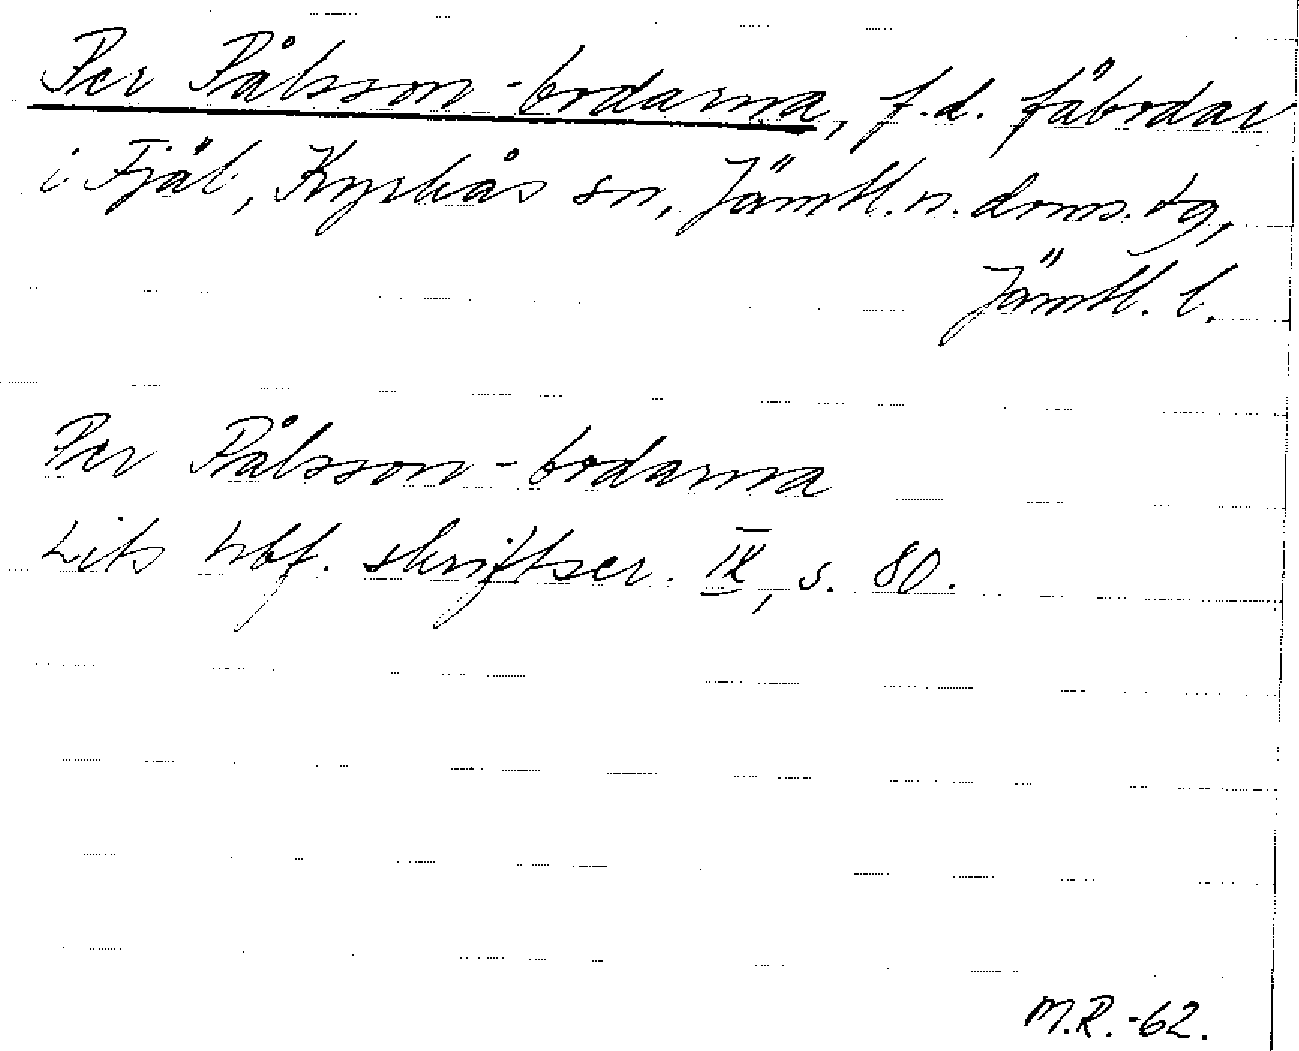 Per Pålsson-bodarna, f.d. fäbodar
i Fjäl, Kyrkås sn, Jämtl. n. doms. tg,
Jämtl. l.
Per Pålsson-bodarna
Lits hbf. skriftser. IX, s. 80.
M.R.-62.